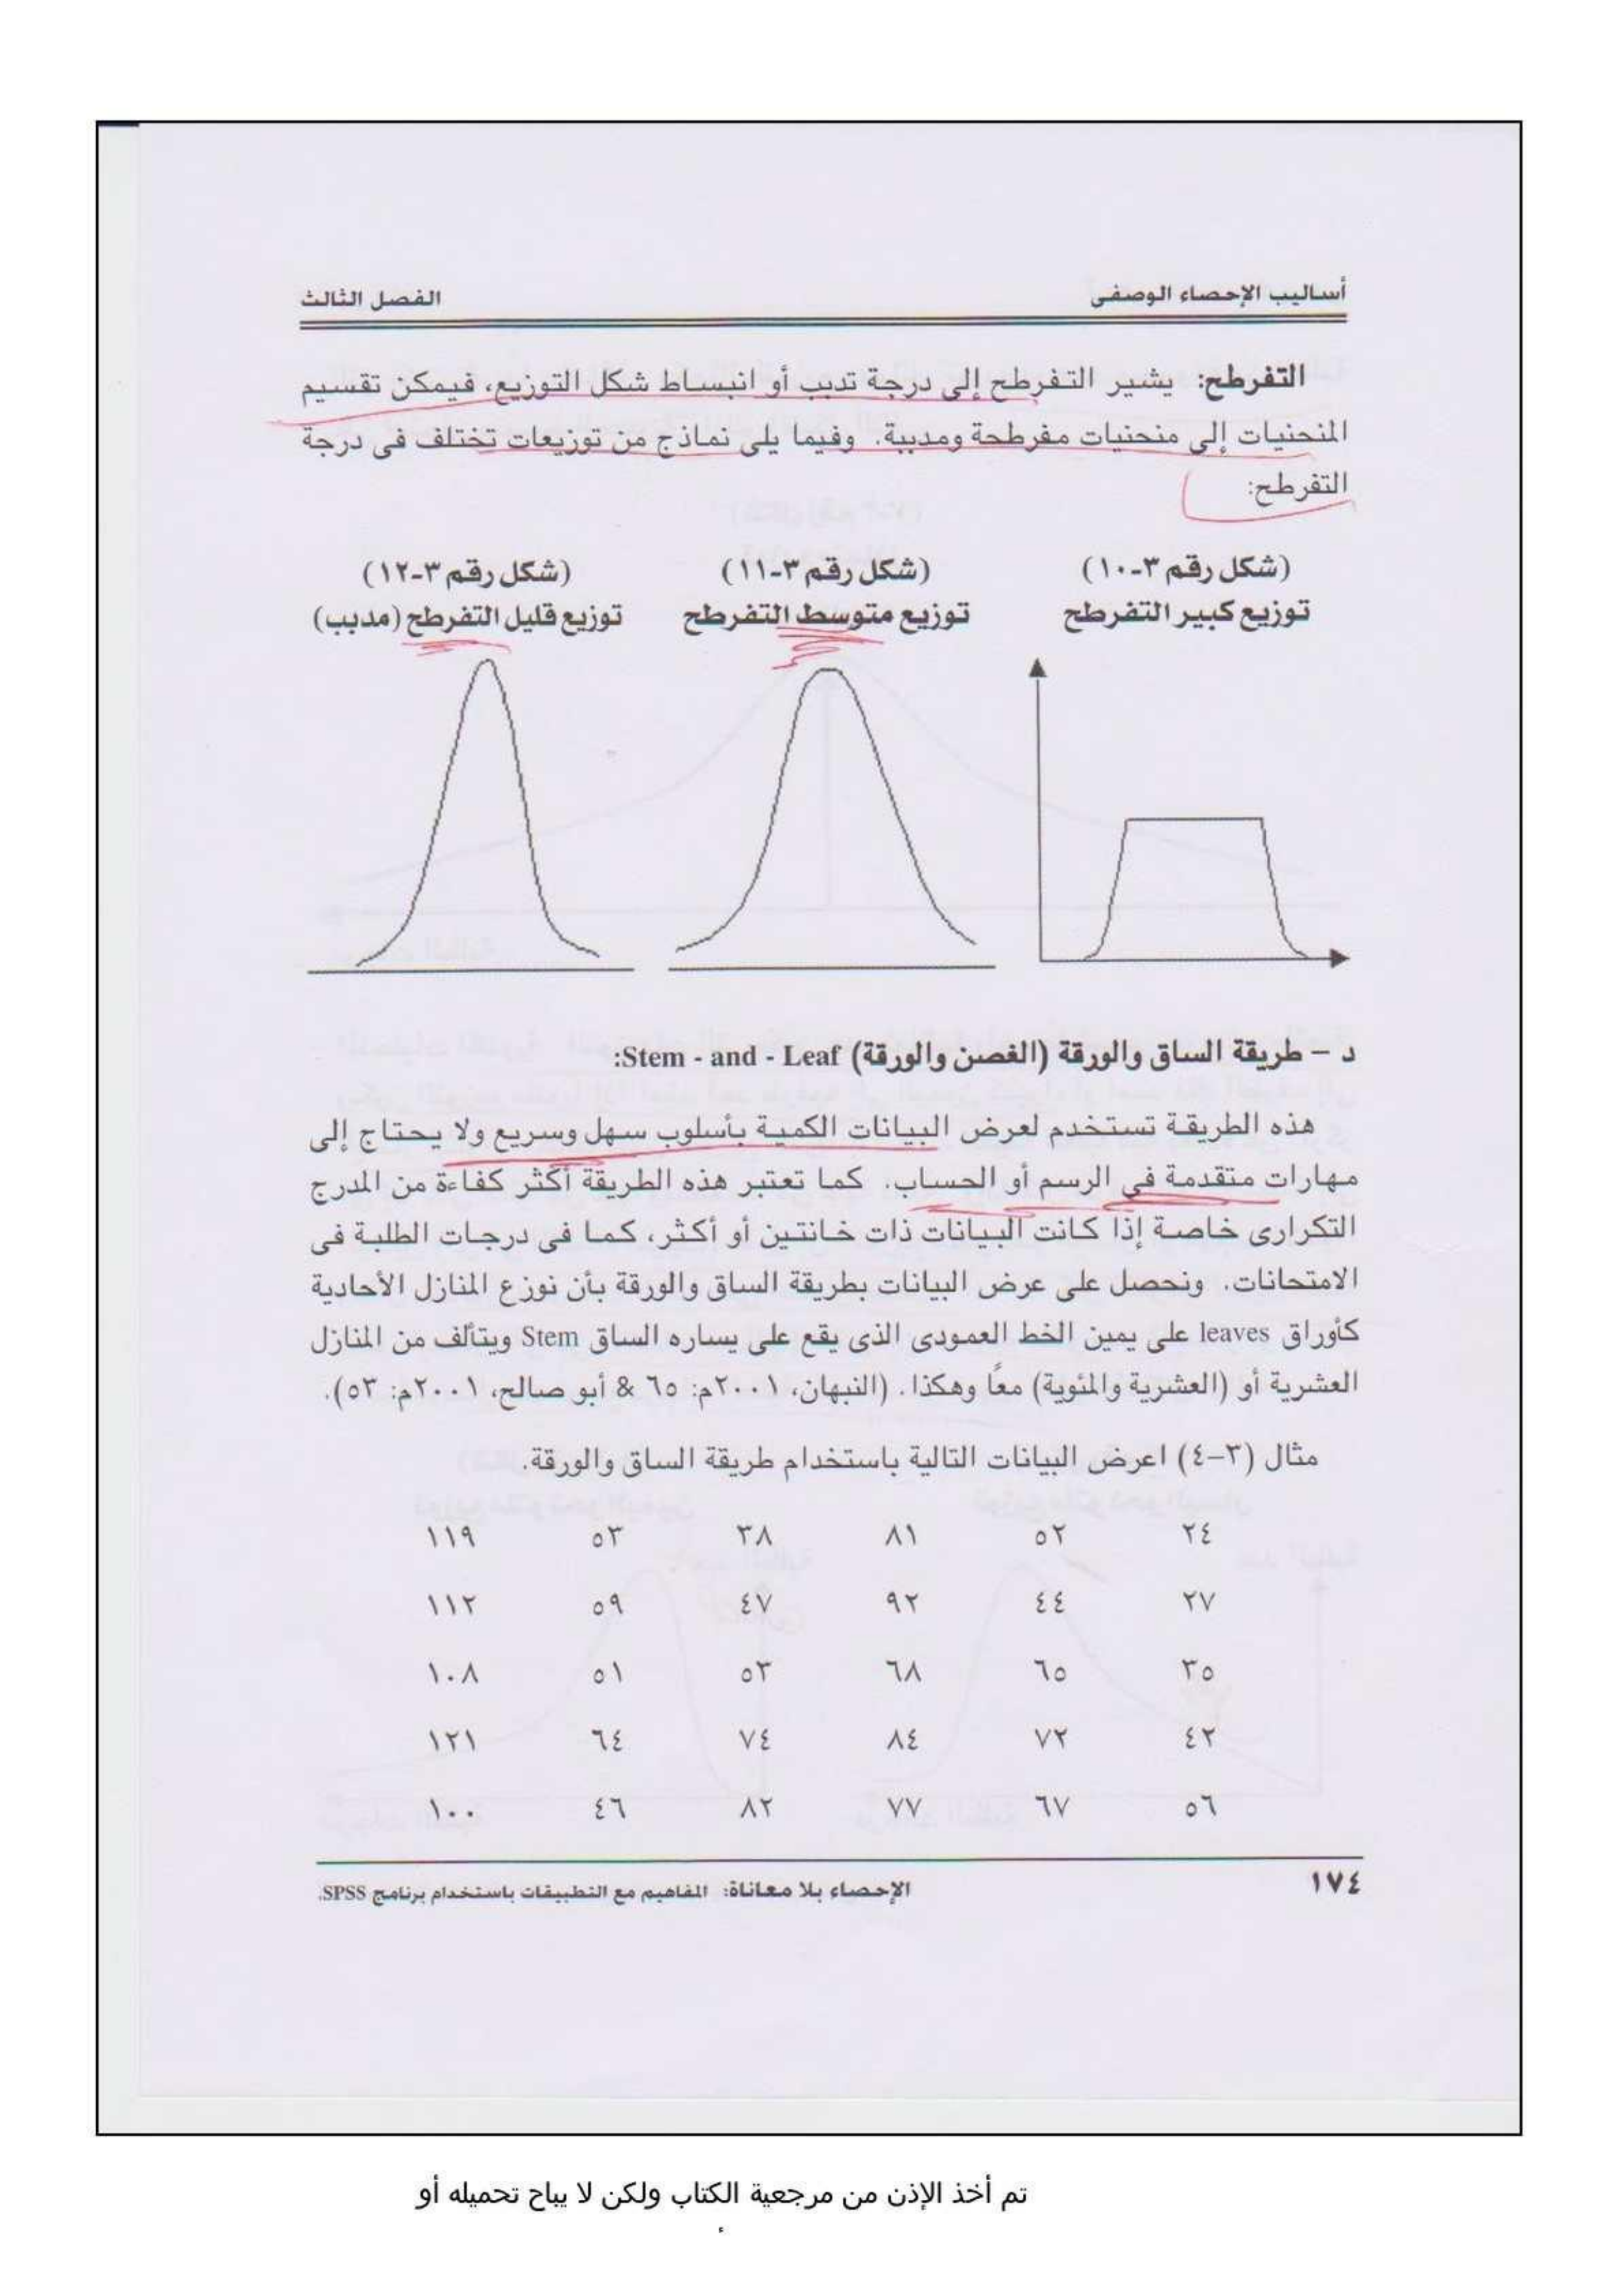 أساليب الإحصاء الوصفى
الفصل الثالث
التفرطح: يشير التفرطح إلى درجة تدبب أو انبساط شكل التوزيع، فيمكن تقسيم
المنحنيات إلى منحنيات مفرطحة ومدببة. وفيما يلى نماذج من توزيعات تختلف فى درجة
التفرطح:
(شكل رقم ٣-١٠) (شكل رقم ٣-١١) (شكل رقم ٣-١٢)
توزيع كبير التفرطح توزيع متوسط التفرطح توزيع قليل التفرطح (مدبب)
د – طريقة الساق والورقة (الغصن والورقة) Stem - and - Leaf:
هذه الطريقة تستخدم لعرض البيانات الكمية بأسلوب سهل وسريع ولا يحتاج إلى
مهارات متقدمة في الرسم أو الحساب. كما تعتبر هذه الطريقة أكثر كفاءة من المدرج
التكرارى خاصة إذا كانت البيانات ذات خانتين أو أكثر، كما فى درجات الطلبة فى
الامتحانات. ونحصل على عرض البيانات بطريقة الساق والورقة بأن نوزع المنازل الأحادية
كأوراق leaves على يمين الخط العمودى الذى يقع على يساره الساق Stem ويتألف من المنازل
العشرية أو (العشرية والمئوية) معاً وهكذا. (النبهان، ٢٠٠١م: ٦٥ & أبو صالح، ٢٠٠١م: ٥٣).
مثال (٣-٤) اعرض البيانات التالية باستخدام طريقة الساق والورقة.
٢٤ ٥٢ ٨١ ٣٨ ٥٣ ١١٩
٢٧ ٤٤ ٩٢ ٤٧ ٥٩ ١١٢
٣٥ ٦٥ ٦٨ ٥٣ ٥١ ١٠٨
٤٢ ٧٢ ٨٤ ٧٤ ٦٤ ١٢١
٥٦ ٦٧ ٧٧ ٨٢ ٤٦ ١٠٠
١٧٤
الإحصاء بلا معاناة: المفاهيم مع التطبيقات باستخدام برنامج SPSS.
تم أخذ الإذن من مرجعية الكتاب ولكن لا يباح تحميله أو